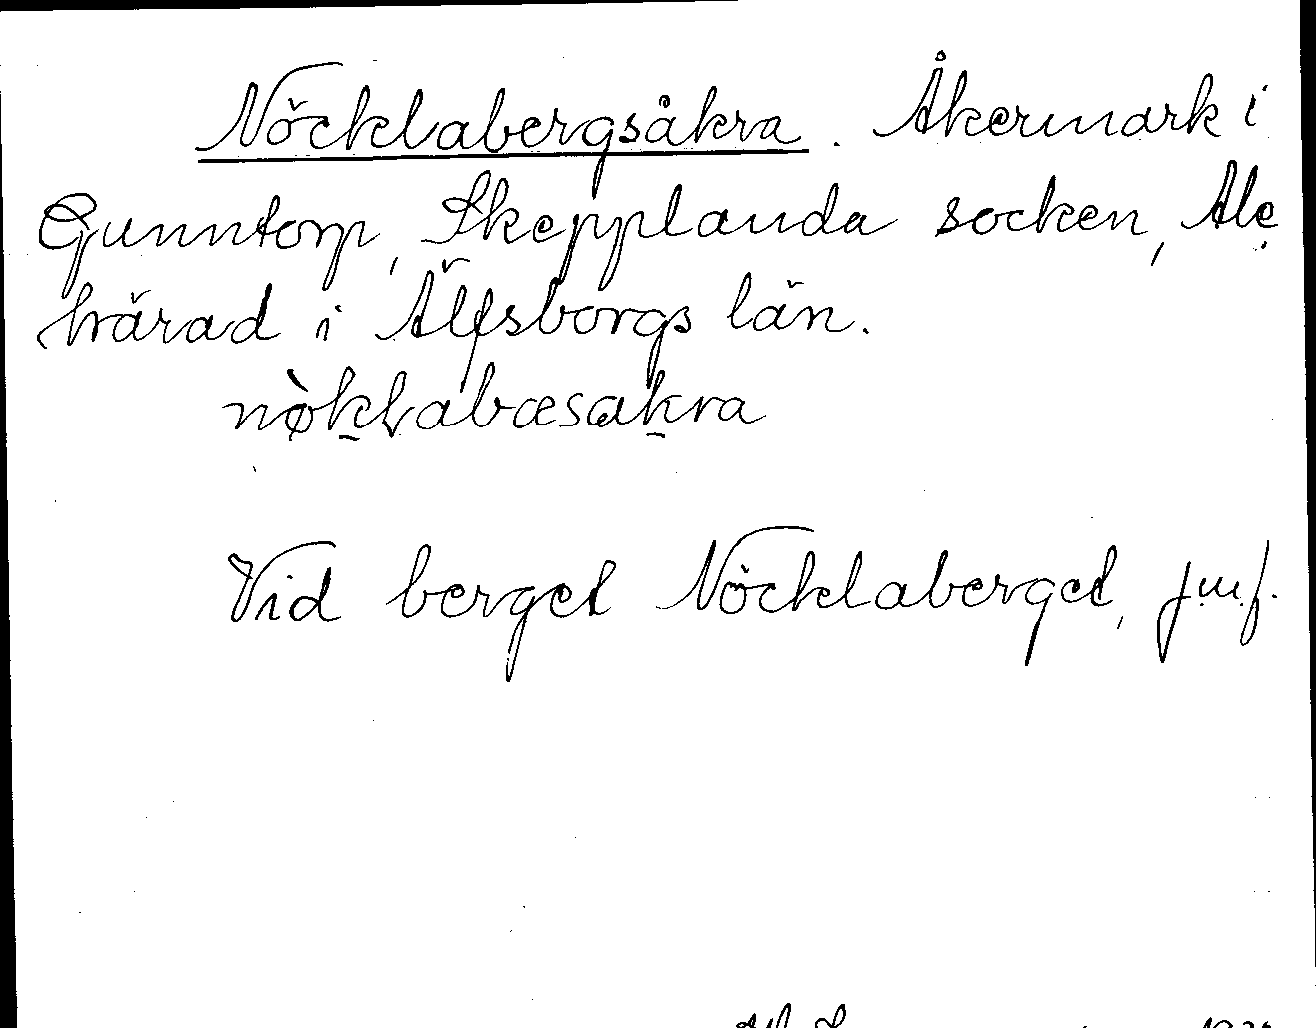 Nöcklabergsåkra. Åkermark i
Gunntorp, Skepplanda socken, Ale
härad i Älfsborgs län.
nø̀kḷabæsakra
Vid berget Nöcklaberget, jmf.